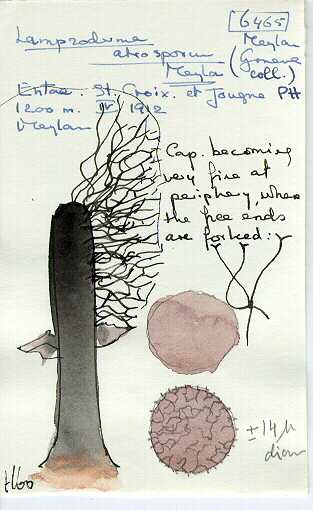 [6465]
Lamproderma
atrosporum
Meylan
Meylan
(Geneva
coll.)
Entre St. Croix et Jougne
1200 m. IV 1912
Meylan
Cap. becoming
very fine at
periphery, where
the free ends
are forked:
± 14 µ
diam